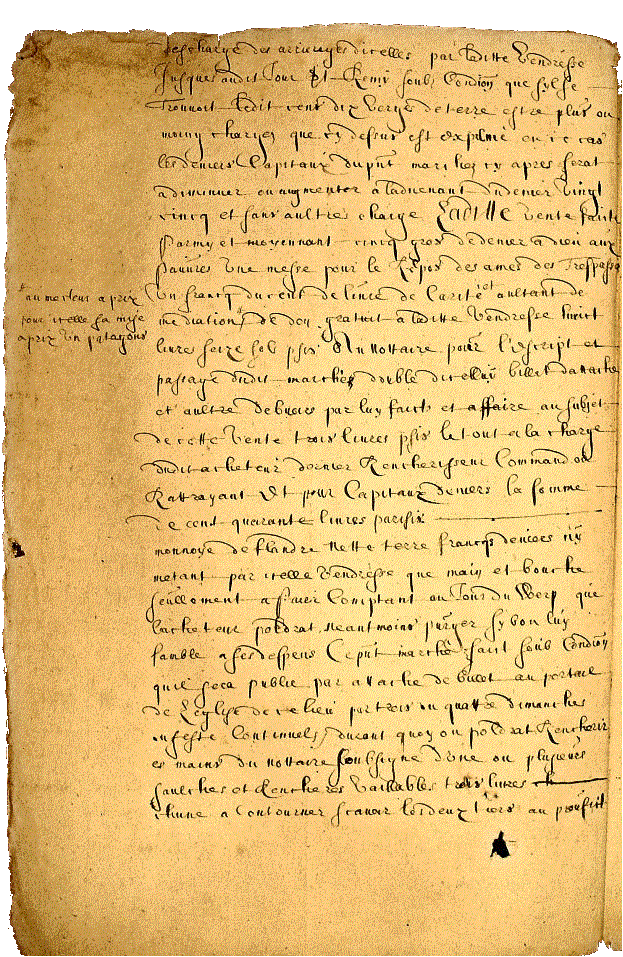 descharge des arrierages dicelles par laditte Vendresse
Jusques audit Jour St Remy soub Condion que sy lse
trouvoit ledit cent dix verges de terre estre plus ou
moing charges que cy dessus est exprime en ce cas
les deniers Capitaux du pnt marchez cy apres serat
a diminuer ou augmenter a ladvenant du denier vingt
cincq et sans aultres charge Laditte vente faicte
parmy et moyennant cincq gros de denier a dieu aux
pauvres une messe pour le Repos des ames des Trespassez
au metteur a prix
un francq du cent de livre de Carité et aultant de
pour icelle sa mise
mediation de don gratuit a laditte Vendresse huict
a prix un patagons
livre seize solz psis Au Nottaire pour l'escript et
passage dudit marches double dicelluy billet dattache
et aultre debvoirs par luy faict et affaire au subject
de cette vente trois livres psis le tout a la charge
dudit acheteur dernier Rencherisseur Command ou
Rattrayant Et pour Capitaux deniers la somme
de cent quarante livres parisis
monnoye de flandre nette terre francqs deniers n'y
metant par icelle Vendresse que main et bouche
seullement a paier Comptant au Jour du Werp que
lacheteur poldrat neantmoins purger sy bon luy
samble a ses despens Ce pnt marché faict soub Condion
quil sera publie par attache de billet au portail
de Leglise de ce lieu par trois ou quattre dimanches
ou feste Continuels durant quoy on poldrat Rencherir
es mains du nottaire soubsigne d'une ou plusieurs
haulches et Rencheres vaillables trois livres ch
chune a Contourner scavoir les deux tiers au prouffict